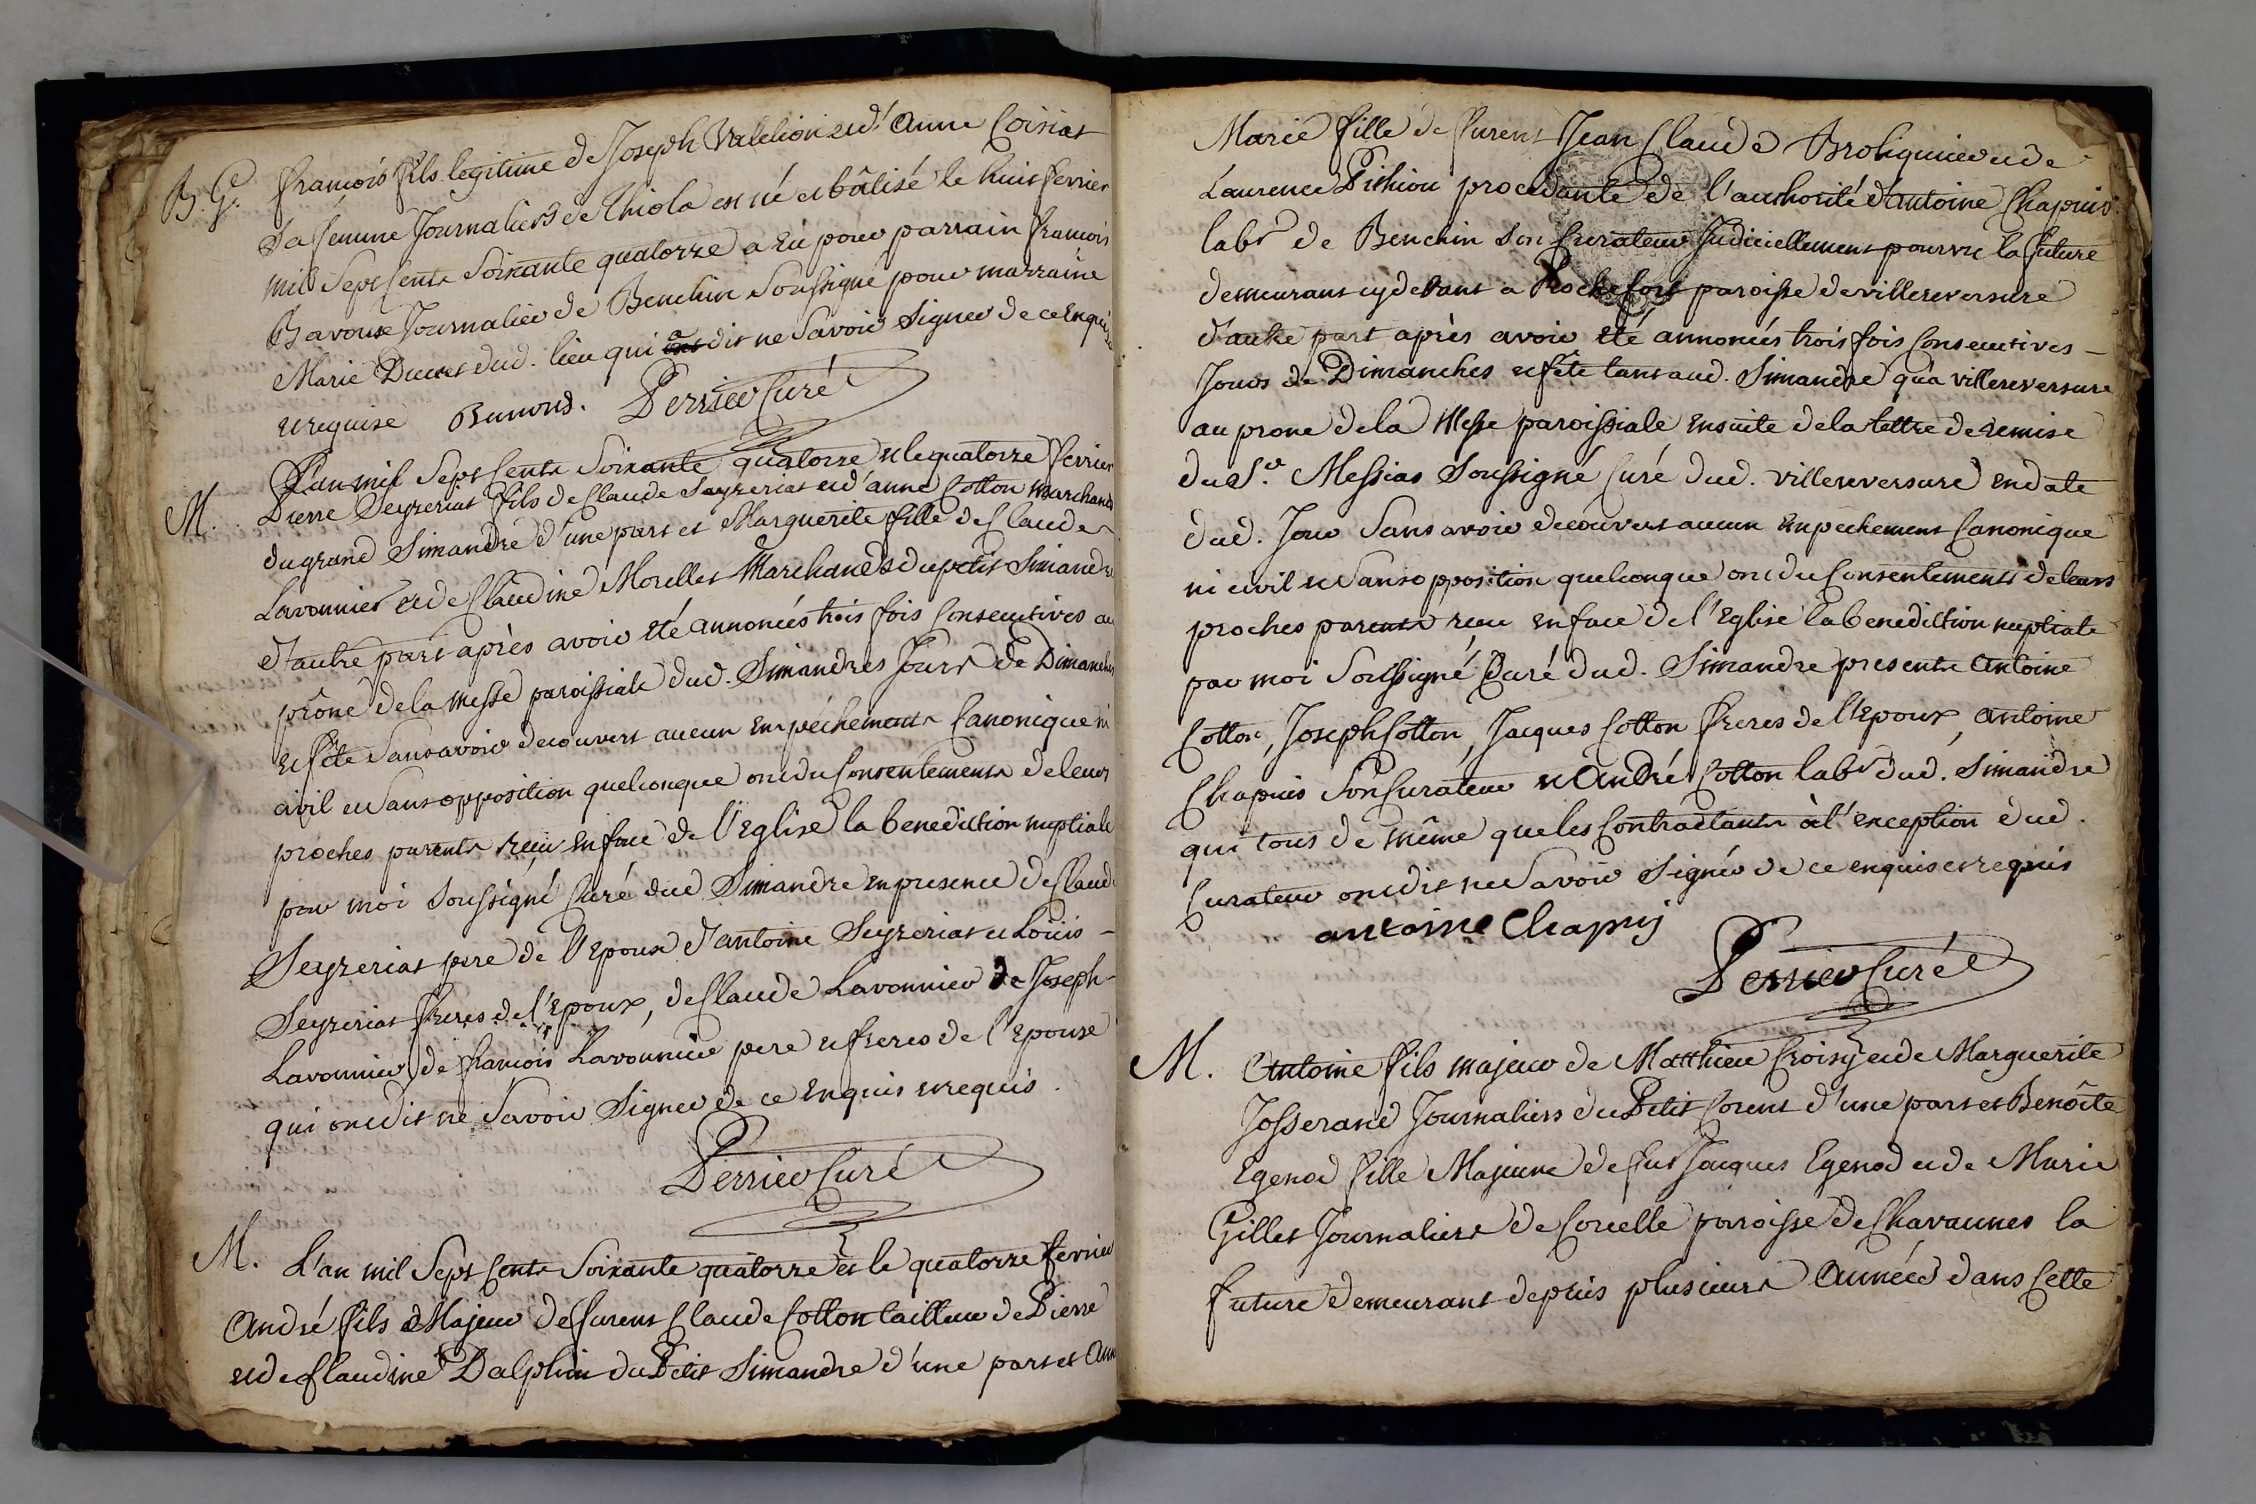 B. G. francois fils legitime de Joseph Valelion et d'anne Coisiat
Sa femme Journaliers de Thiola est né et bâtisé le huit fevrier
mil Sept Cents Soixante quatorze a eu pour parrain francois
Bavoux Journalier de Benchin Soussigné pour marraine
Marie Ducret dud. lieu qui dit ne Savoir Signer de ce enquise
et requise Perrier Curé
M. L'an mil Sept Cents Soixante quatorze et le quatorze fevrier
Pierre Seyzeriat fils de Claude Seyzeriat et d'anne Cotton Marchand
du grand Simandre d'une part et Marguerite fille de Claude
Lavonnier et de Claudine Morellet Marchands du petit Simandre
d'autre part après avoir été annoncés trois fois Consecutives au
prône de la Messe paroissiale dud. Simandres Jours de Dimanches
et fête Sans avoir decouvert aucun empêchements Canonique ni
civil et Sans opposition quelconque ont du Consentements de leurs
proches parents reçu en face de l'Eglise la benediction nuptiale
par moi Soussigné Curé dud Simandre en presence de Claude
Seyzeriat pere de l'Epoux d'antoine Seyzeriat et Loüis
Seyzeriat freres de l'Epoux, de Claude Lavonnier de Joseph
Lavonnier de francois Lavonnier pere et freres de l'Epouse
qui ont dit ne Savoir Signer de ce enquis et requis.
Perrier Curé
M. L'an mil Sept Cents Soixante quatorze et le quatorze fevrier
André fils Majeur de furent Claude Cotton tailleur de Pierre
et de Claudine Dalphin du Petit Simandre d'une part et Anne
Marie fille de furent Jean Claude Broliquier et de
Laurence Pithiou procedante de l'authorité d'antoine Chapuis
labr de Benchin Son Curateur Judiciellement pourvu la future
demeurant cy devant a Rochefort paroisse de villereversure
d'autre part après avoir été annoncés trois fois Consecutives
Jours de Dimanches et fête tant aud. Simandre qu'a villereversure
au prone de la Messe paroissiale ensuite de la lettre de remise
du Sr. Messias Soussigné Curé dud. villereversure en date
dud. Jour Sans avoir decouvert aucun empechement Canonique
ni civil et Sans opposition quelconque ont du Consentements de leurs
proches parents recu en face de l'Eglise la benediction nuptiale
par moi Soussigné Curé dud. Simandre presents Antoine
Cotton, Joseph Cotton, Jacques Cotton freres de l'Epoux, antoine
Chapuis Son Curateur et André Cotton labr dud. Simandre
qui tous de même que les Contractants à l'exception dud.
Curateur ont dit ne Savoir Signer de ce enquis et requis
antoine Chapuy
Perrier Curé
M. Antoine fils majeur de Matthieu Croisy et de Marguerite
Josserand Journaliers du Petit Corent d'une part et Benôite
Egenod fille Majeure de fut Jacques Egenod et de Marie
Gillet Journaliers de Corcelle paroisse de Chavannes la
future demeurant depuis plusieurs Années dans Cette